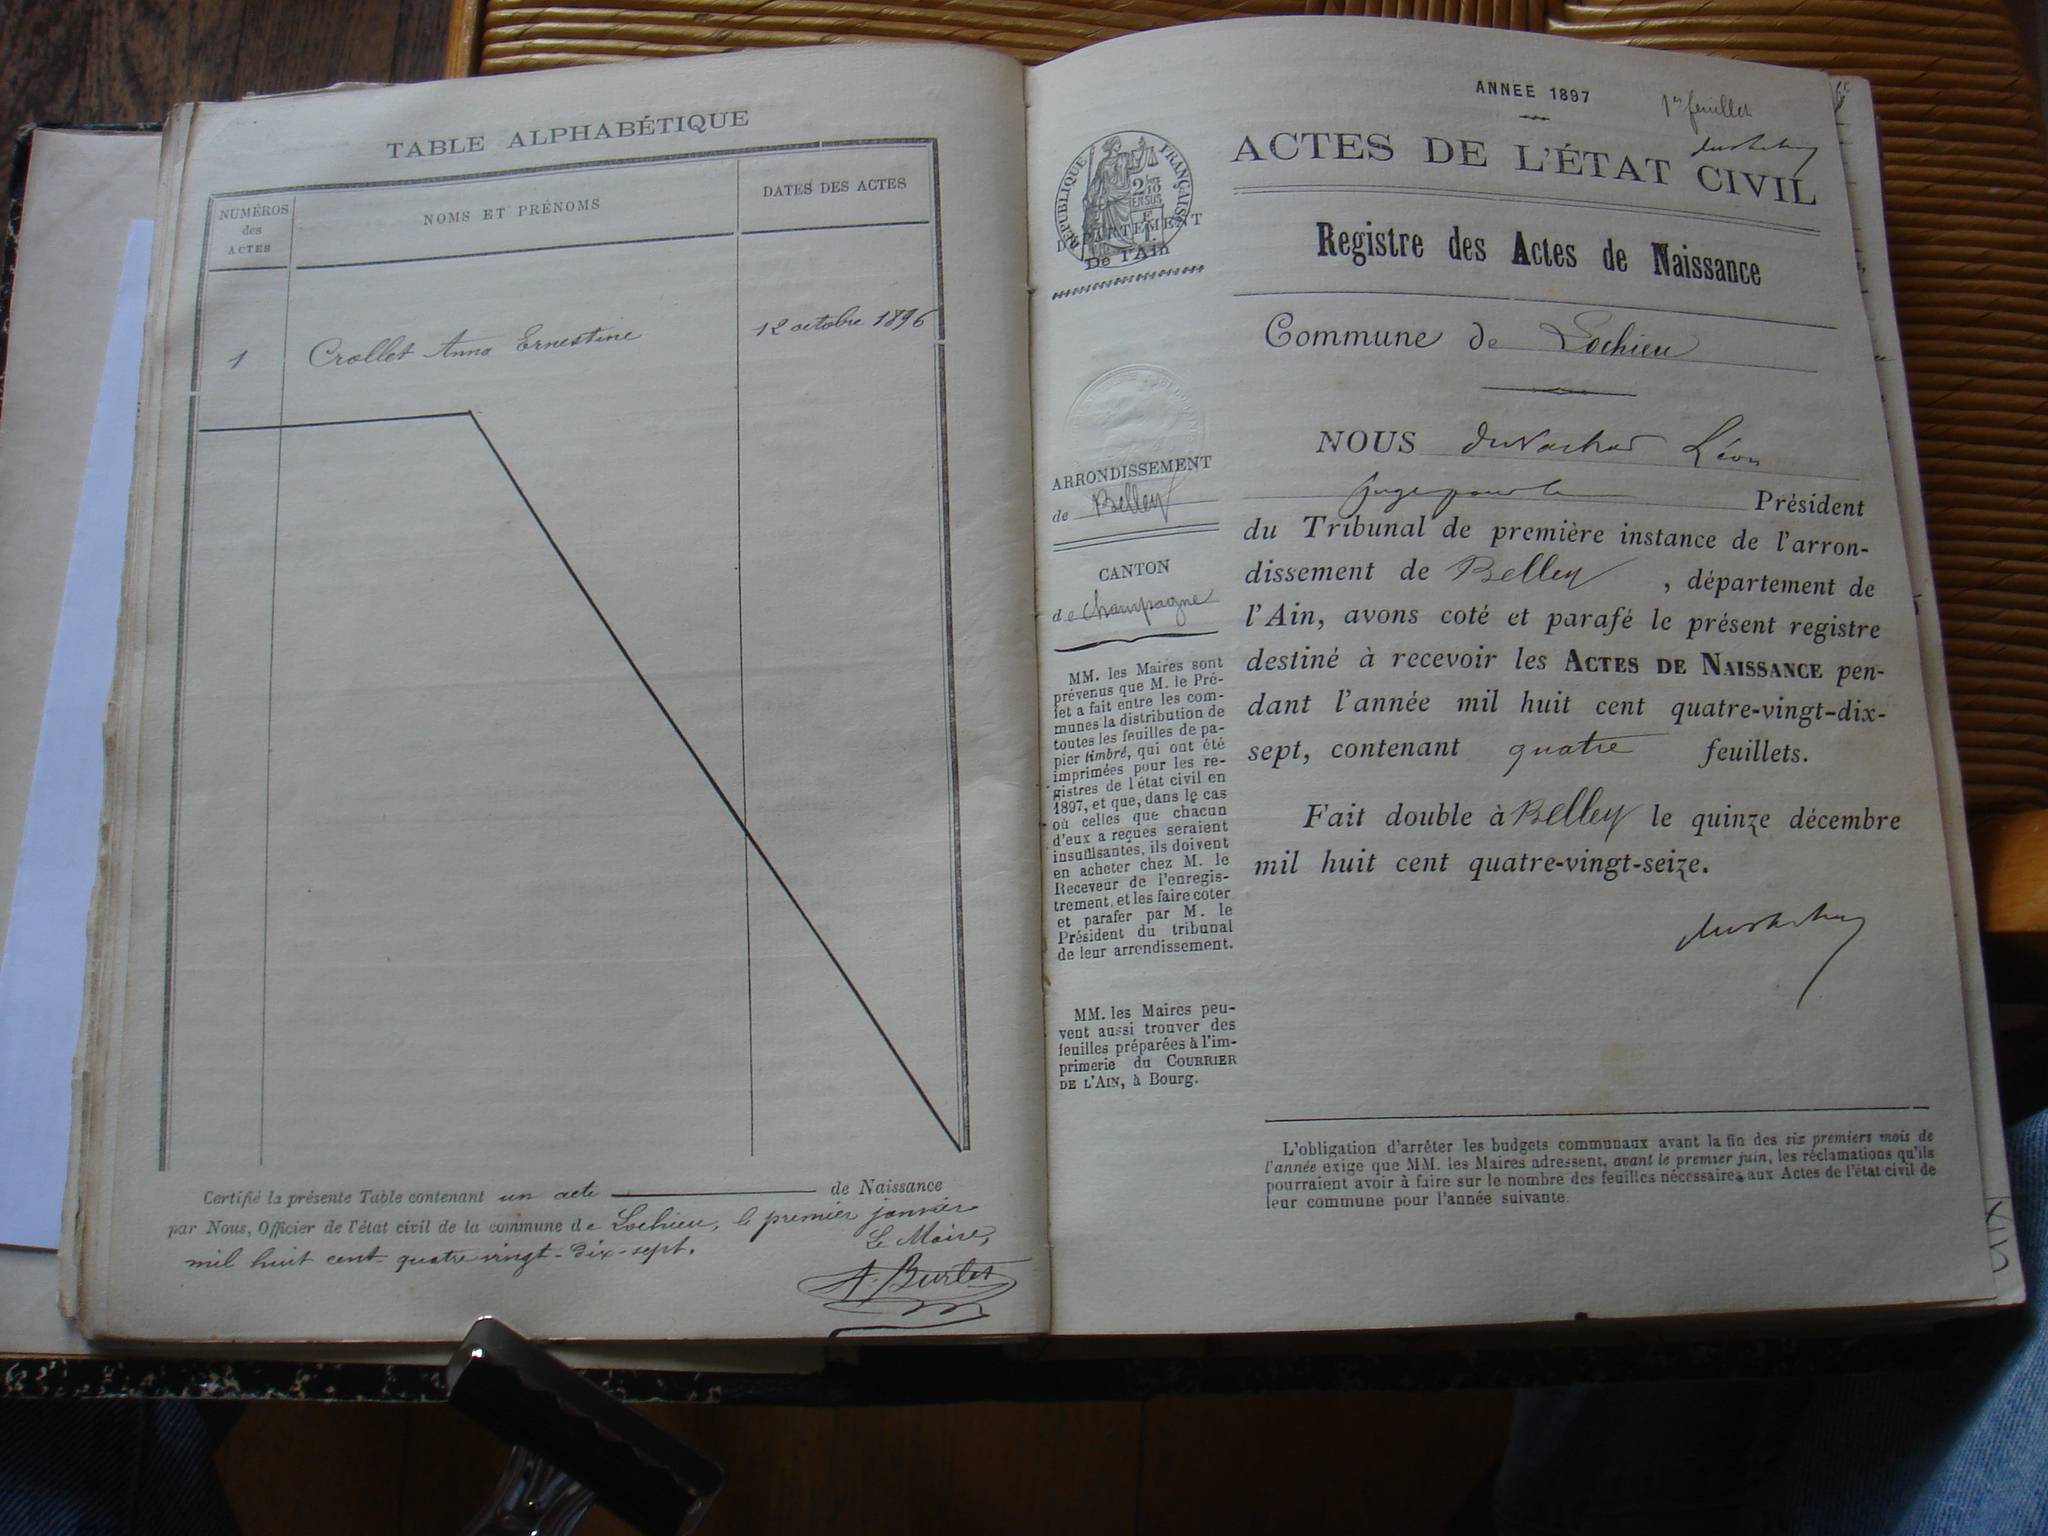 TABLE ALPHABÉTIQUE
NUMÉROS
des
ACTES
NOMS ET PRÉNOMS
DATES DES ACTES
1
Crollet Anna Ernestine
12 octobre 1896
Certifié la présente Table contenant un acte de Naissance
par Nous, Officier de l'état civil de la commune de Lochieu, le premier janvier
mil huit cent quatre vingt-dix-sept.
Le Maire,
A. Burlet
ANNÉE 1897
1er feuillet
RÉPUBLIQUE FRANÇAISE
DÉPARTEMENT
De l'Ain
ACTES DE L'ÉTAT CIVIL
Registre des Actes de Naissance
Commune de Lochieu
ARRONDISSEMENT
de Belley
CANTON
de Champagne
MM. les Maires sont
prévenus que M. le Pré-
fet a fait entre les com-
munes la distribution de
toutes les feuilles de pa-
pier timbré, qui ont été
imprimées pour les re-
gistres de l'état civil en
1897, et que, dans le cas
où celles que chacun
d'eux a reçues seraient
insuffisantes, ils doivent
en acheter chez M. le
Receveur de l'enregis-
trement, et les faire coter
et parafer par M. le
Président du tribunal
de leur arrondissement.
MM. les Maires peu-
vent aussi trouver des
feuilles préparées à l'im-
primerie du COURRIER
DE L'AIN, à Bourg.
NOUS Léon
juge pour le Président
du Tribunal de première instance de l'arron-
dissement de Belley, département de
l'Ain, avons coté et parafé le présent registre
destiné à recevoir les ACTES DE NAISSANCE pen-
dant l'année mil huit cent quatre-vingt-dix-
sept, contenant quatre feuillets.
Fait double à Belley le quinze décembre
mil huit cent quatre-vingt-seize.
L'obligation d'arrêter les budgets communaux avant la fin des six premiers mois de
l'année exige que MM. les Maires adressent, avant le premier juin, les réclamations qu'ils
pourraient avoir à faire sur le nombre des feuilles nécessaires aux Actes de l'état civil de
leur commune pour l'année suivante.